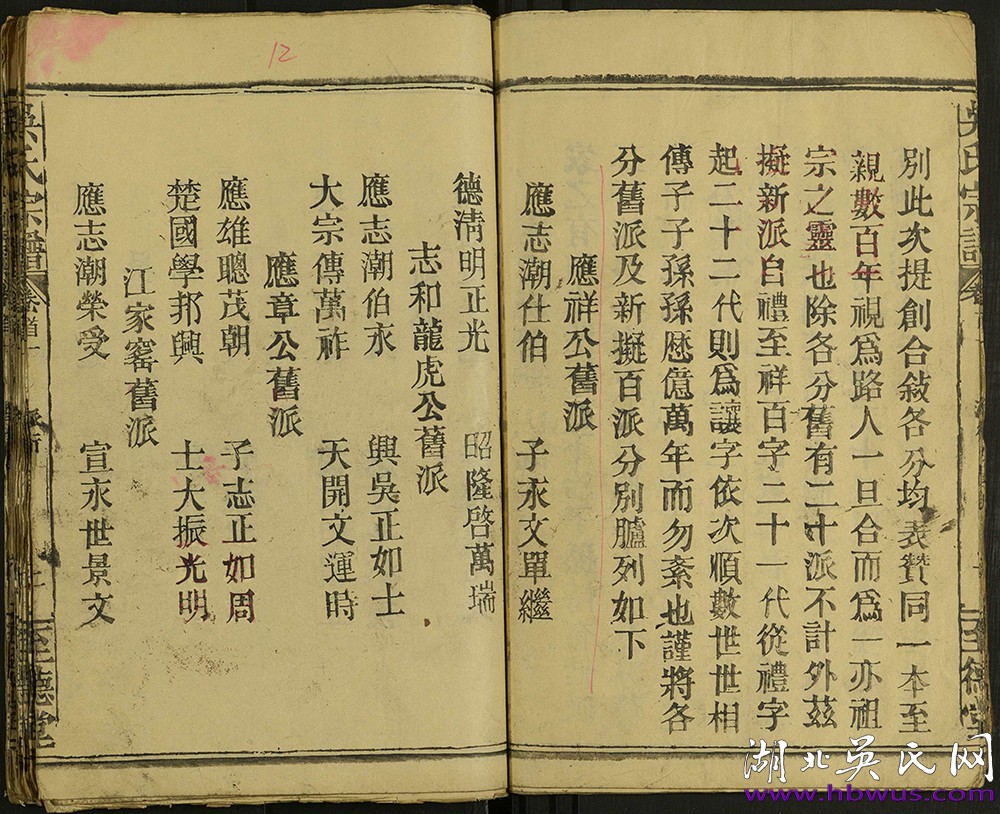 別此次提創合敍各分均表贊同一本至
親數百年視爲路人一旦合而爲一亦祖
宗之靈也除各分舊有二十派不計外茲
擬新派自禮至祥百字二十一代從禮字
起二十二代則爲讓字依次順數世世相
傳子子孫孫歷億萬年而勿紊也謹將各
分舊派及新擬百派分別臚列如下
應祥公舊派
應志潮仕伯 子永文單繼
德清明正光 昭隆啓萬瑞
志和龍虎公舊派
應志潮伯永 興吳正如士
大宗傳萬祚 天開文運時
應章公舊派
應雄聰茂朝 子志正如周
楚國學邦興 士大振光明
江家窰舊派
應志潮榮受 宣永世景文
吳氏宗譜
至德堂
吳氏宗譜
至德堂
12
湖北吳氏网
www.hbwus.com